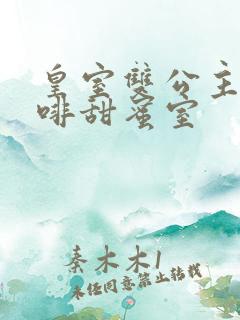 皇室雙公主
啡甜蜜室
秦木木1
未經同意禁止轉載